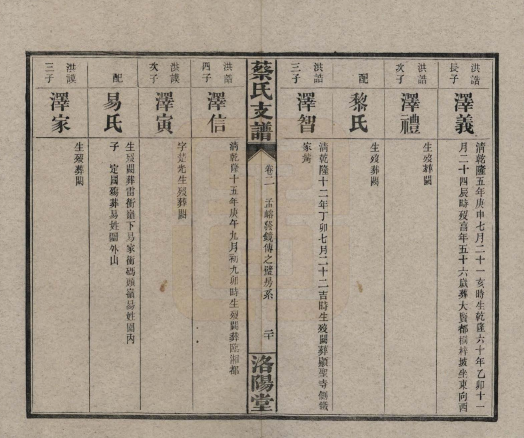 洪誥
長子
澤義
清乾隆五年庚申七月二十一亥時生乾隆六十年乙卯十一
月二十四辰時歿享年五十六歲葬大賢都楓梓坡坐東向酉
洪誥
次子
澤禮
生歿葬闕
配
黎氏
生歿葬闕
洪誥
三子
澤智
清乾隆十二年丁卯七月二十二吉時生歿闕葬顯聖寺側戴
家灣
蔡氏支譜
卷二
孟
公錢傳之璧易系
二十
洛陽堂
洪誥
四子
澤信
清乾隆十五年庚午九月初九卯時生歿闕葬臨湘都
洪謨
次子
澤寅
字楚光生歿葬闕
配
易氏
生歿闕葬雷衝嶺下易家衝碼頭嶺易姓園內
子
定國殤葬易姓園外山
洪謨
三子
澤家
生歿葬闕